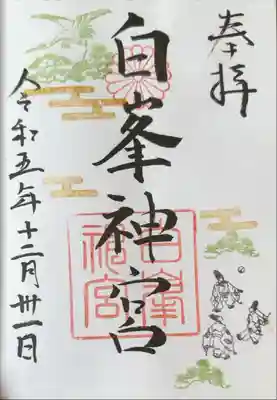 奉拝
白峯神宮
令和五年十二月卅一日
白峯神宮